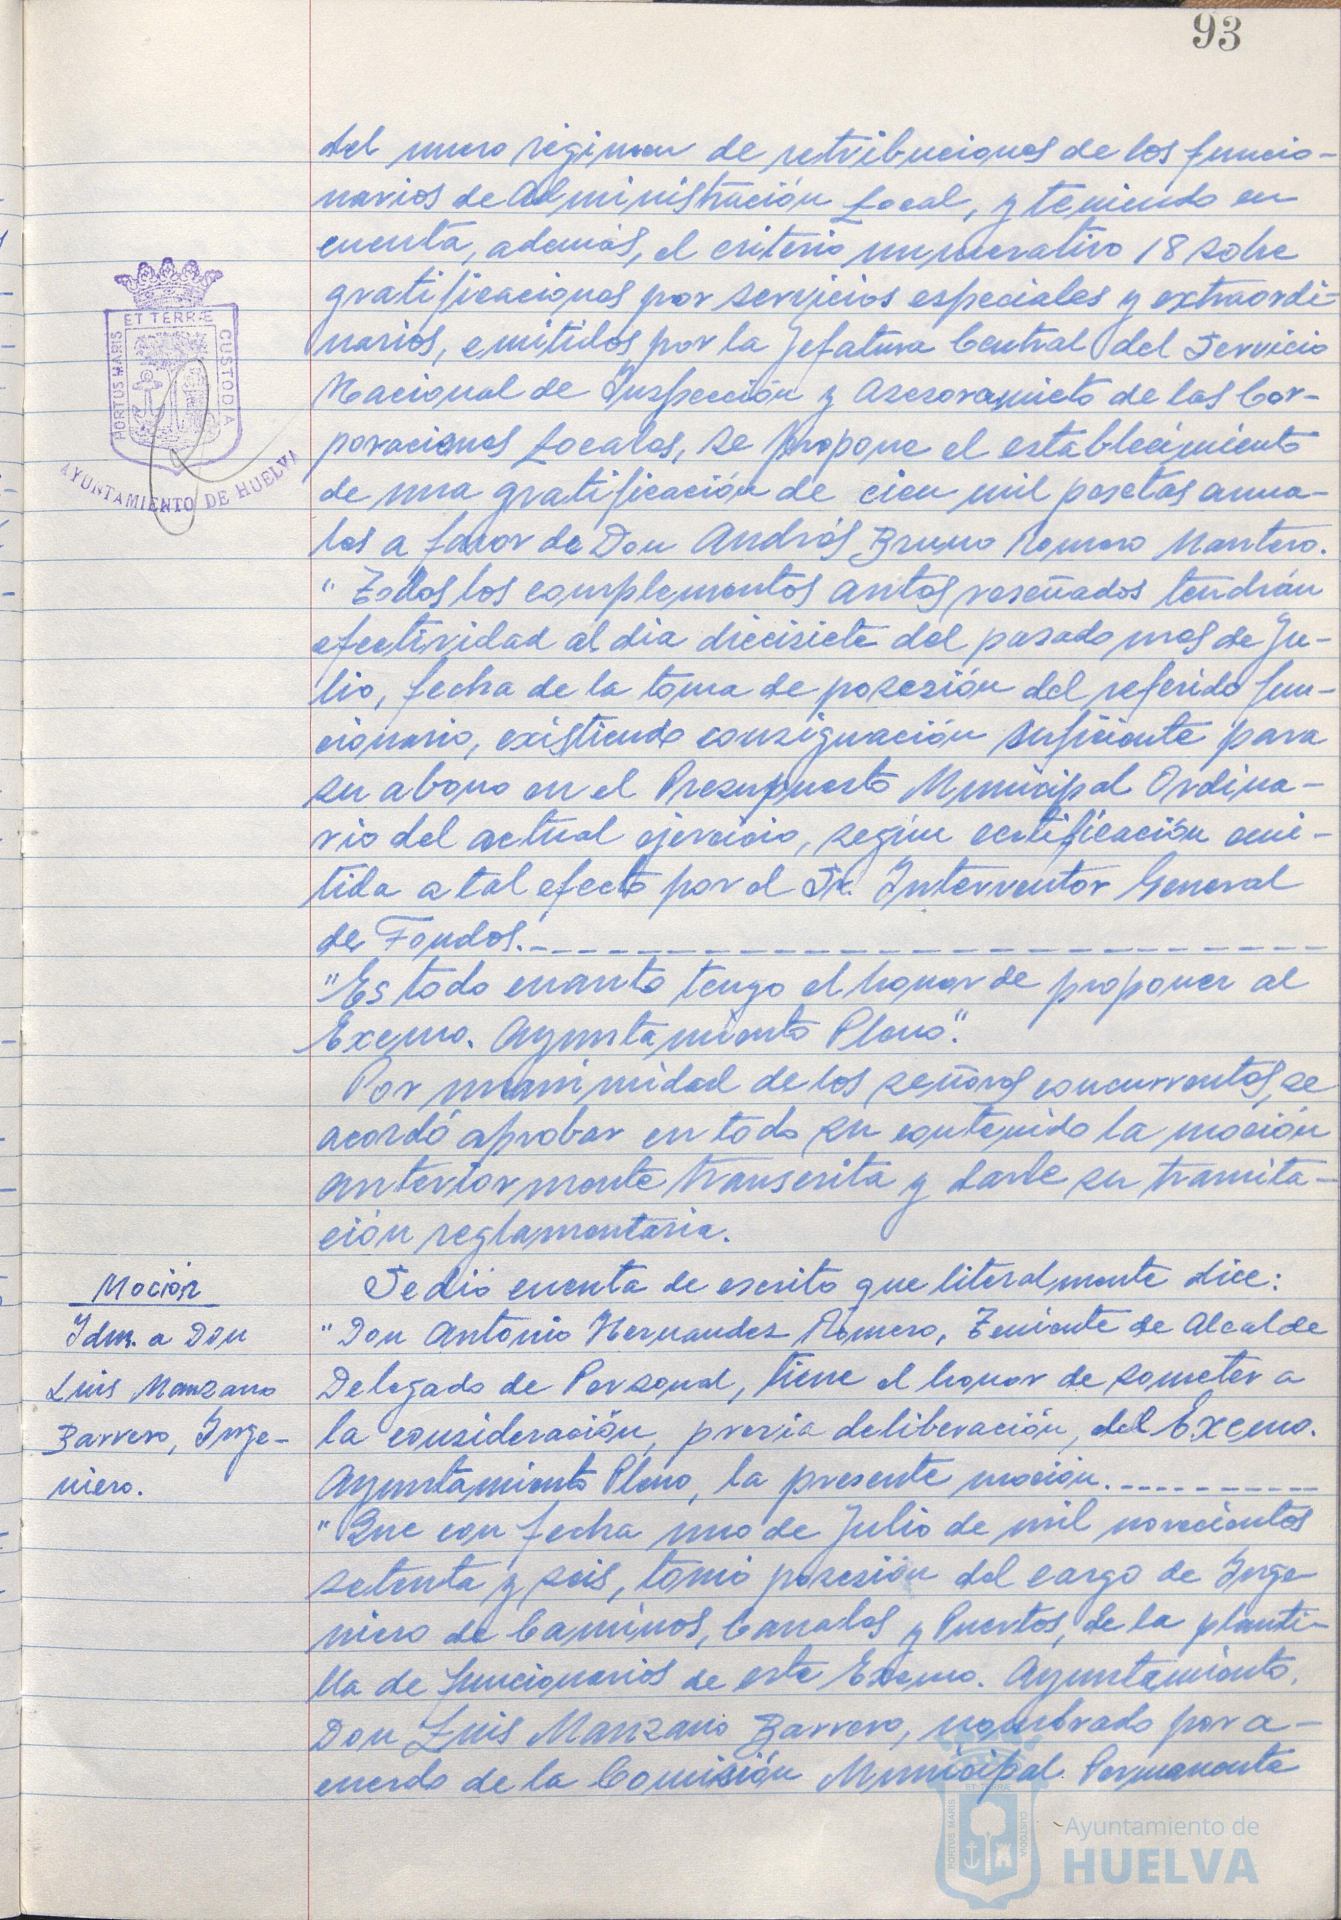 93
del nuevo régimen de retribuciones de los funcio-
narios de Administración Local, y teniendo en
cuenta, además, el criterio numerativo 18 sobre
gratificaciones por servicios especiales y extraordi-
narios, emitidos por la Jefatura Central del Servicio
Nacional de Inspección y Asesoramieto de las Cor-
poraciones Locales, se propone el establecimiento
de una gratificación de cien mil pesetas anua-
les a favor de Don Andrés Bruno Romero Mantero.
"Todos los complementos antes reseñados tendrán
efectividad al dia diecisiete del pasado mes de Ju-
lio, fecha de la toma de posesión del referido fun-
cionario, existiendo consignación suficiente para
su abono en el Presupuesto Municipal Ordina-
rio del actual ejercicio, según certificación emi-
tida a tal efecto por el Sr. Interventor General
de Fondos.-
"Es todo cuanto tengo el honor de proponer al
Excmo. Ayuntamiento Pleno".
Por unanimidad de los señores concurrentes, se
acordó aprobar en todo su contenido la moción
anteriormente transcrita y darle su tramita-
ción reglamentaria.
Moción
Idm. a Don
Luis Manzano
Barrero, Inge-
niero.
Se dió cuenta de escrito que literalmente dice:
"Don Antonio Hernandez Romero, Teniente de Alcalde
Delegado de Personal, tiene el honor de someter a
la consideración, previa deliberación, del Excmo.
Ayuntamiento Pleno, la presente moción.
"Que con fecha uno de Julio de mil novecientos
setenta y seis, tomó posesión del cargo de Inge
niero de Caminos, Canales y Puertos, de la planti-
lla de funcionarios de este Excmo. Ayuntamiento,
Don Luis Manzano Barrero, nombrado por a-
cuerdo de la Comisión Municipal Permanente
PORTUS MARIS ET TERRÆ CUSTODIA
AYUNTAMIENTO DE HUELVA
PORTUS MARIS ET TERRÆ CUSTODIA
Ayuntamiento de
HUELVA